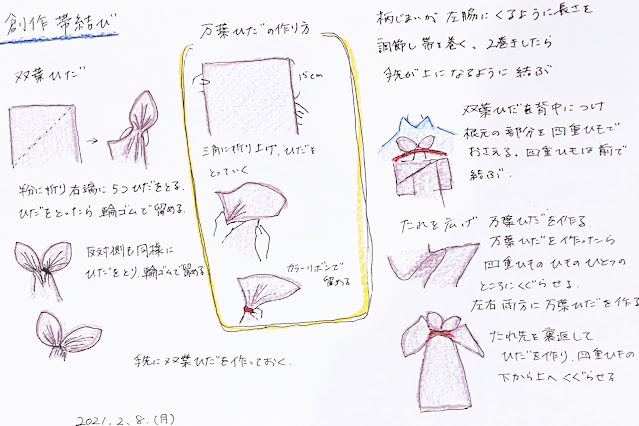 創作 帯結び
双葉ひだ
斜めに折り右端に5つひだをとる。
ひだをとったら輪ゴムで留める。
反対側も同様に
ひだをとり、輪ゴムで留める
手先に双葉ひだを作っておく。
2021.2.8.(月)
万葉ひだの作り方
15cm
三角に折り上げ、ひだを
とっていく
カラーリボンで
留める
柄じまいが 左脇にくるように長さを
調節し 帯を巻く、2巻きしたら
手先が上になるように 結ぶ
双葉ひだを背中につけ
根元の部分を四重ひもで
おさえる。四重ひもは前で
結ぶ.
たれを広げ 万葉ひだを作る.
万葉ひだを作ったら
四重ひものひもひとつの
ところにくぐらせる.
左右両方に万葉ひだを作る
たれ先を裏返して
ひだを作り、四重ひもの
下から上へくぐらせる